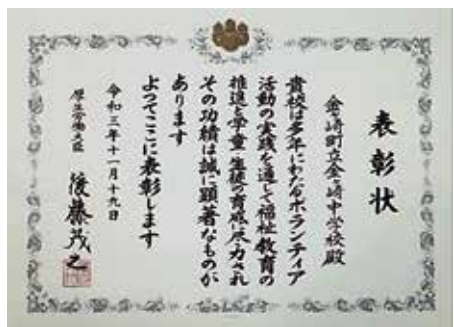 表彰状
金ケ崎町立金ケ崎中学校殿
貴校は多年にわたるボランティア
活動の実践を通して福祉教育の
推進と学童・生徒の育成に尽力され
その功績は誠に顕著なものが
あります
よってここに表彰します
令和三年十一月十九日
厚生労働大臣 後藤茂之